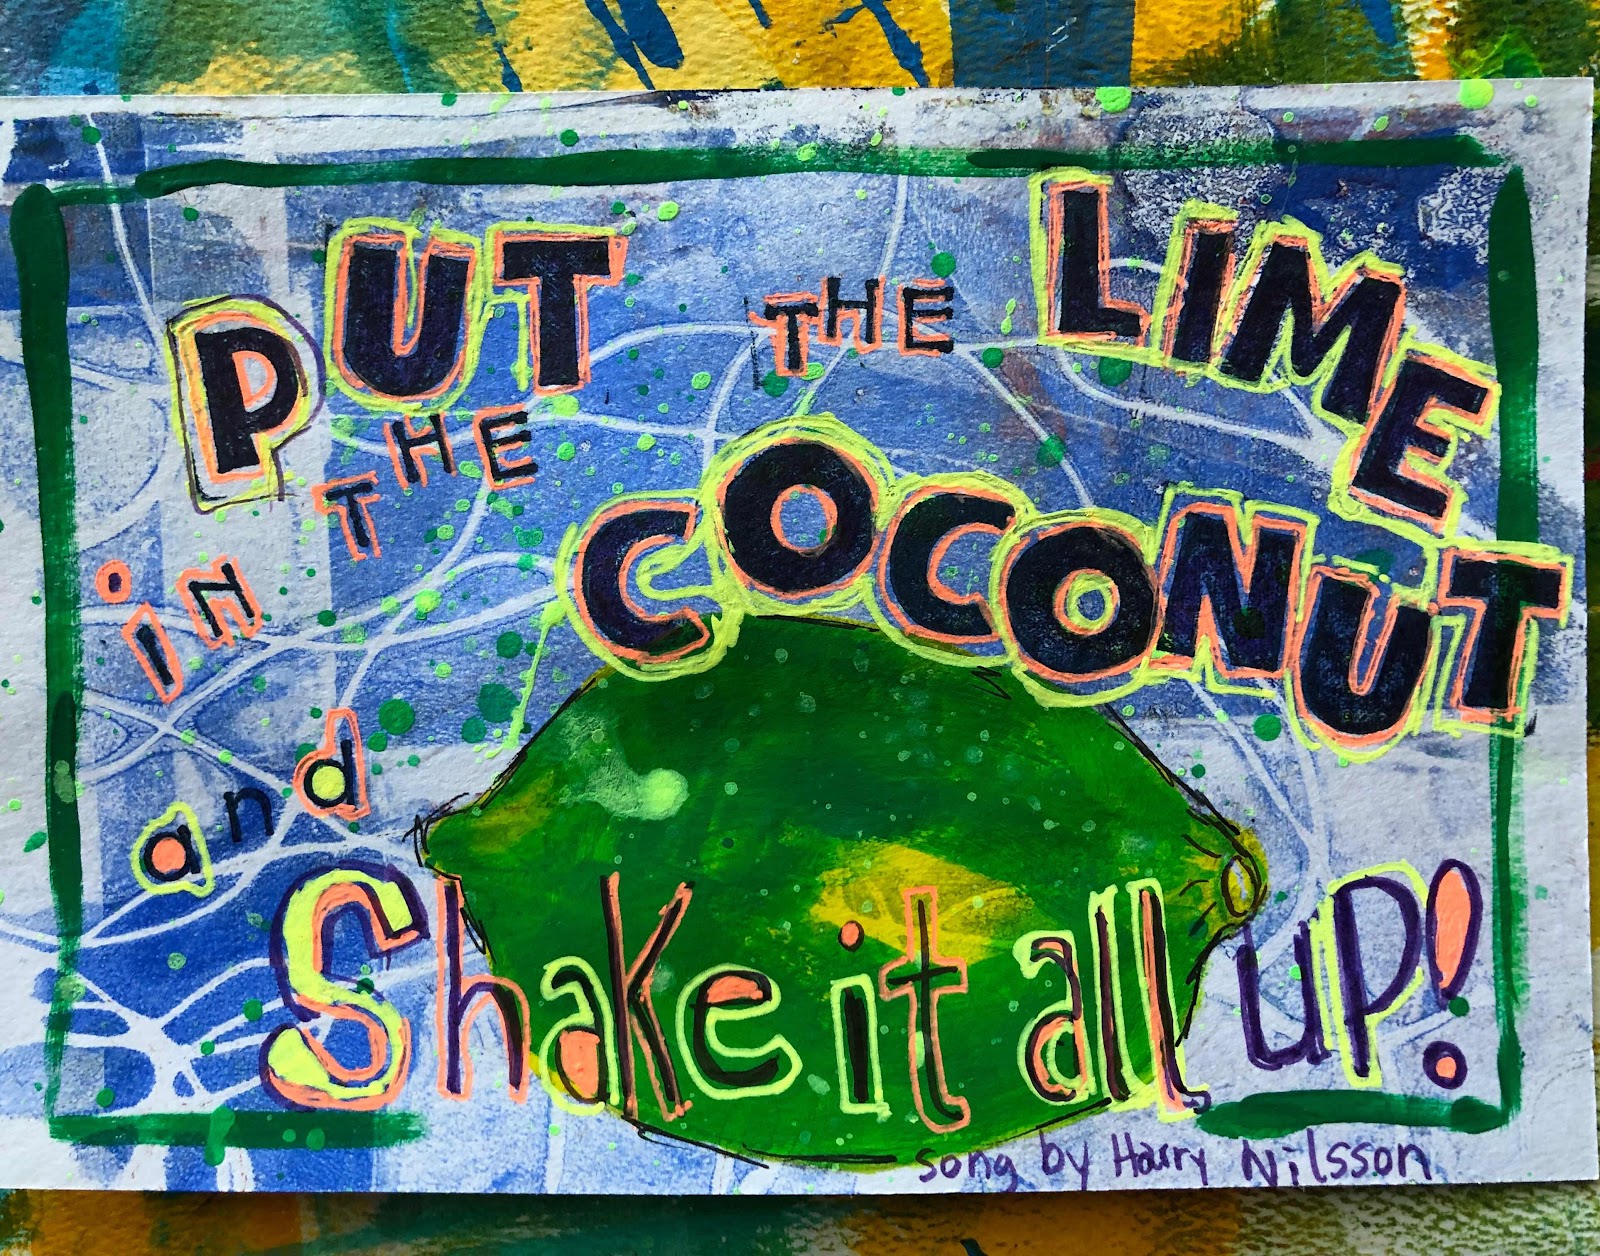 PUT THE LIME
in THE COCONUT
and
Shake it all UP!
song by Harry Nilsson